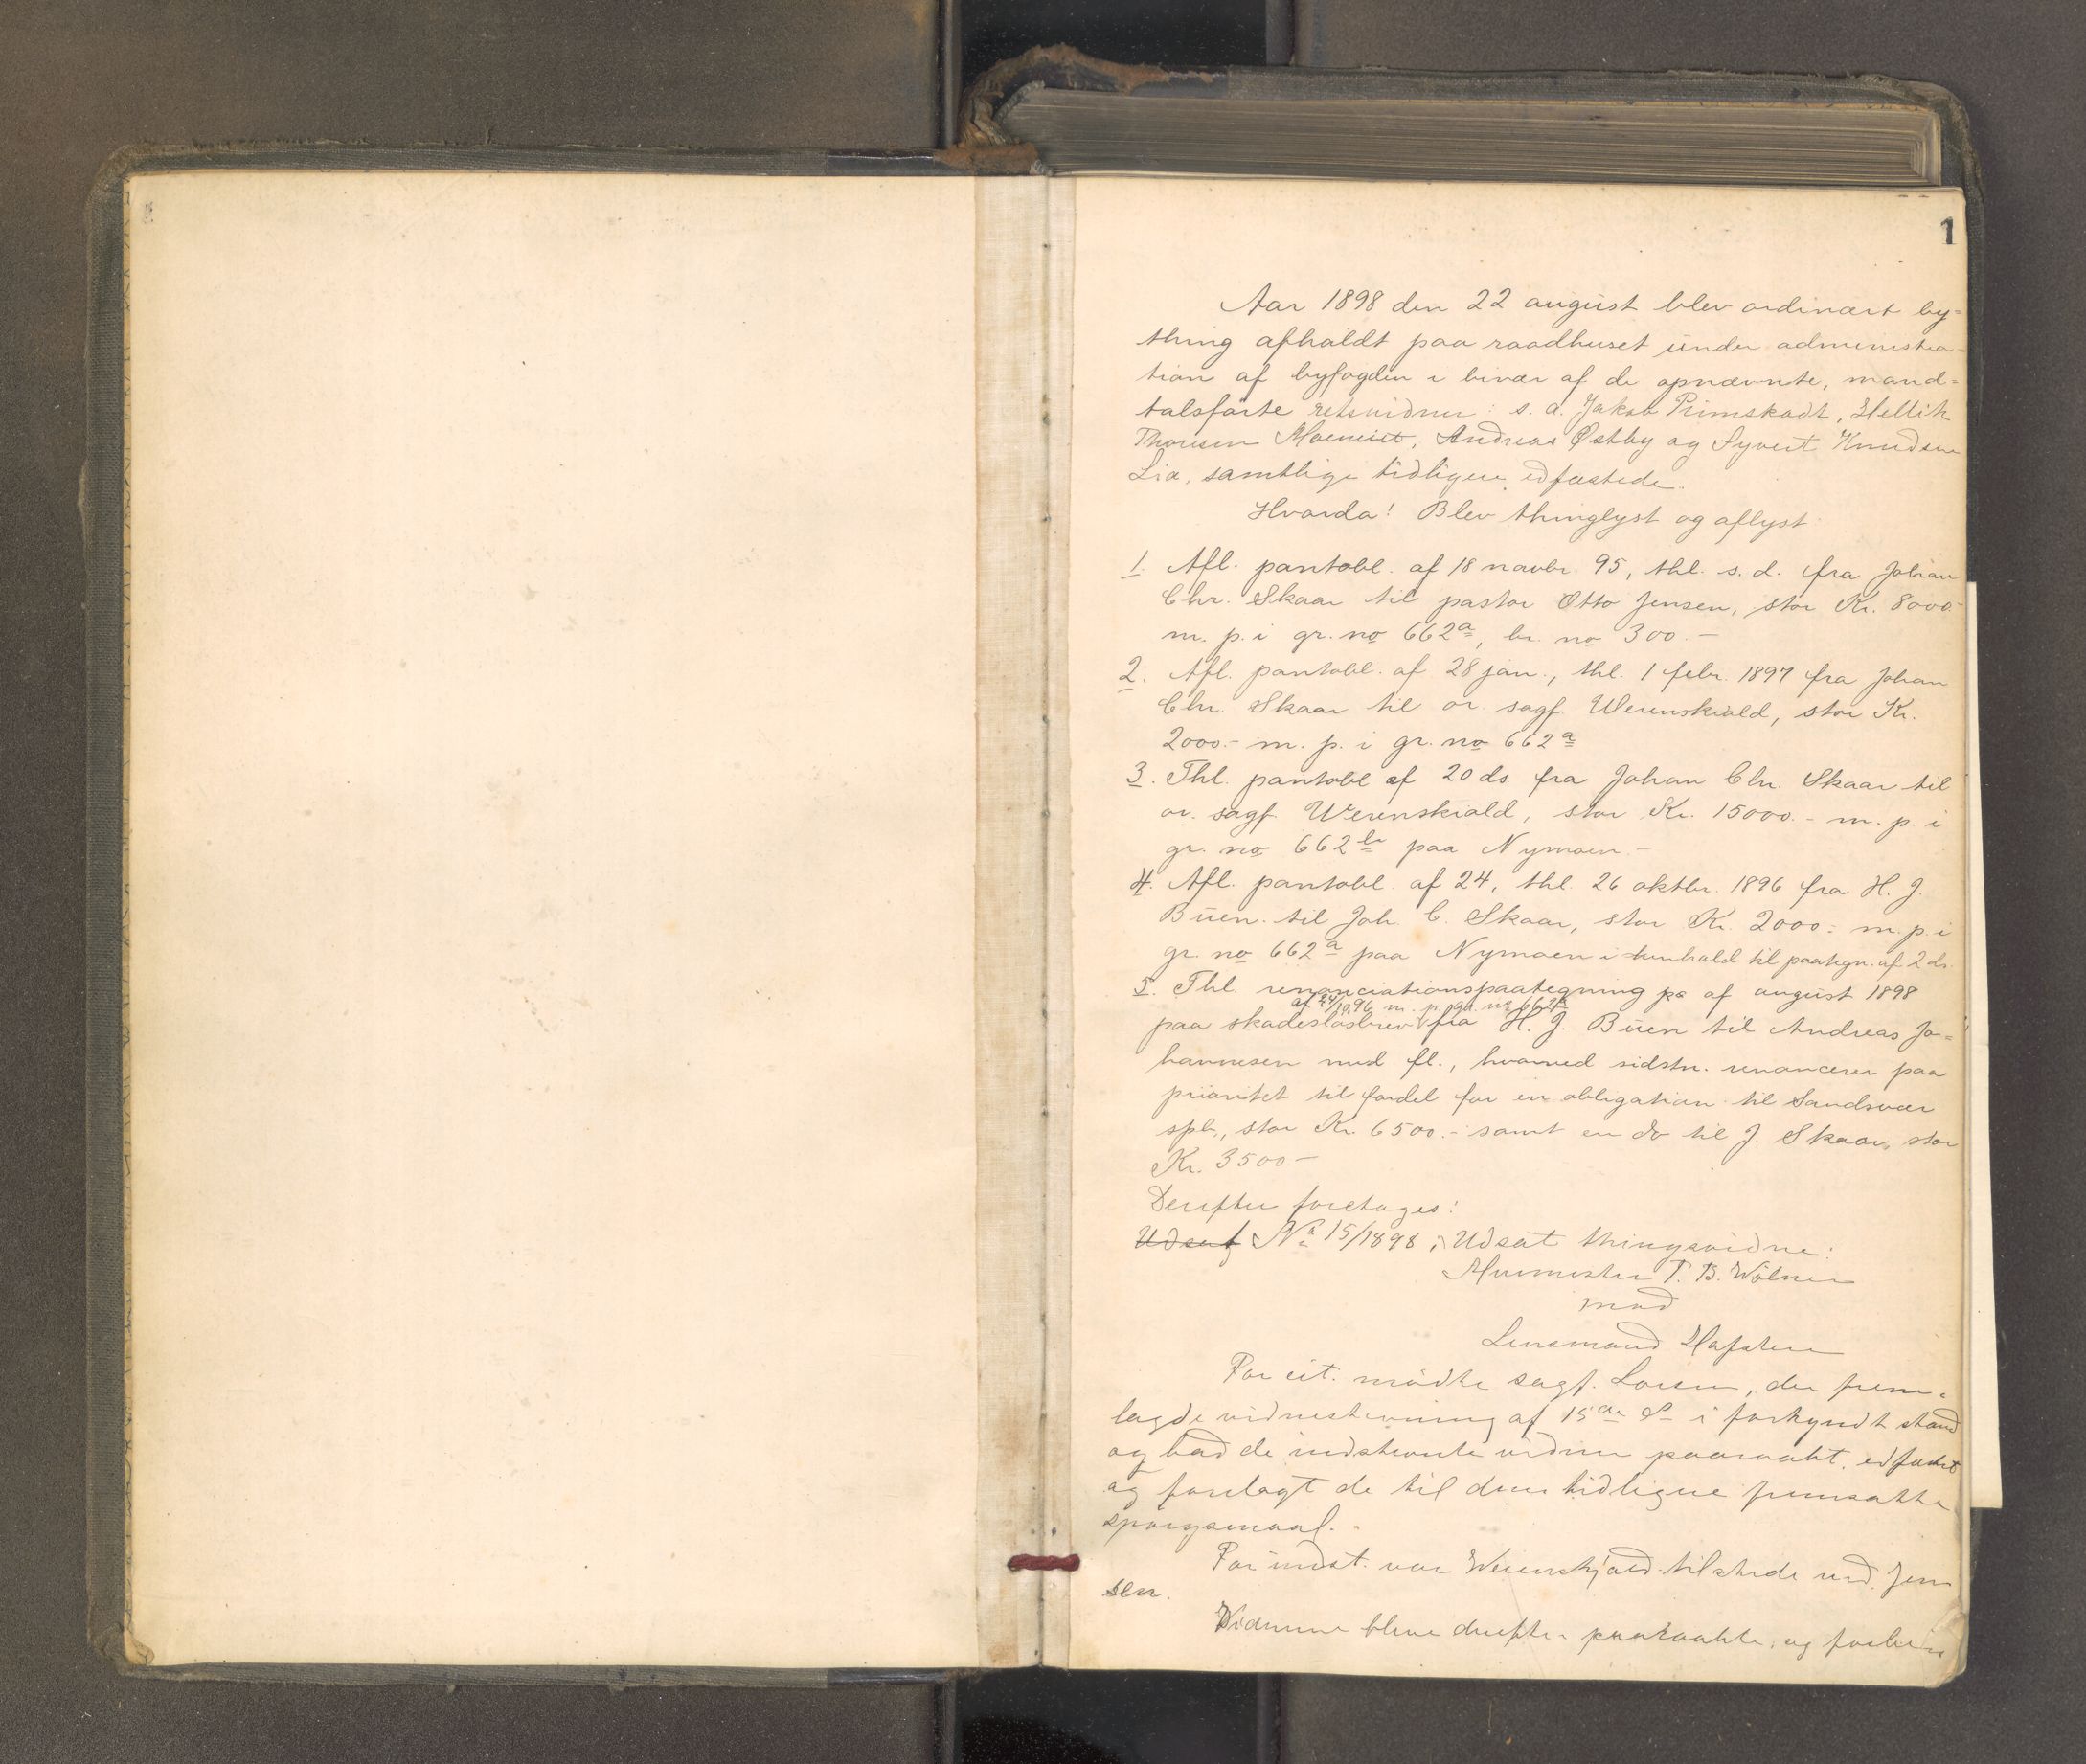 1
Aar 1898 den 22 august blev ordinært by-
thing afholdt paa raadhuset under administra-
tion af byfogden i bivær af de opnævnte, mand-
talsførte retsvidner: s. a. Jakob Primskadt, Hellik
Thorsen Moen, Andreas Østby og Syvert Knudsen
Lia, samtlige tidligere edfæstede.
Hvorda! Blev thinglyst og aflyst
1. Afl. pantobl. af 18 novbr. 95, thl. s. d. fra Johan
Chr. Skaar til pastor Otto Jensen, stor Kr. 8000.-
m. p. i gr. no 662a, br. no 300.-
2. Afl. pantobl. af 28 jan., thl. 1 febr. 1897 fra Johan
Chr. Skaar til or. sagf. Werenskiold, stor Kr.
2000.- m. p. i gr. no 662a
3. Thl. pantobl af 20 ds. fra Johan Chr. Skaar til
or. sagf. Werenskiold, stor Kr. 15000.- m. p. i
gr. no 662b paa Nymoen.-
4. Afl. pantobl. af 24, thl. 26 oktbr. 1896 fra H. J.
Buen. til Joh. C. Skaar, stor Kr. 2000.- m. p. i
gr. no 662a paa Nymoen i henhold til paategn. af 2 ds.
5. Thl. renonciationspaategning pa af august 1898
af 24/10.96 m. p. gr. no 662a
paa skadesløsbrev fra H. J. Buen til Andreas Jo-
hannesen med fl., hvorved sidstn. renoncerer paa
prioritet til fordel for en obligation til Sandsvær
spb., stor Kr. 6500.- samt en do til J. Skaar, stor
Kr. 3500-
Derefter foretages:
Udsat No 15/1898; Udsat thingsvidne:
Murmester T. B. Wölner
mod
Lensmand Hafsten
For cit. mødte sagf. Larsen, der frem-
lagde vidnestevning af 15de ds i forkyndt stand
og bad de indstevnte vidner paaraabt, edfæstet
og forelagt de til dem tidligere fremsatte
spørgsmaal.-
For indst. var Werenskjold tilstede ved Jen
sen.
Vidnerne bleve derefter paaraabte, og